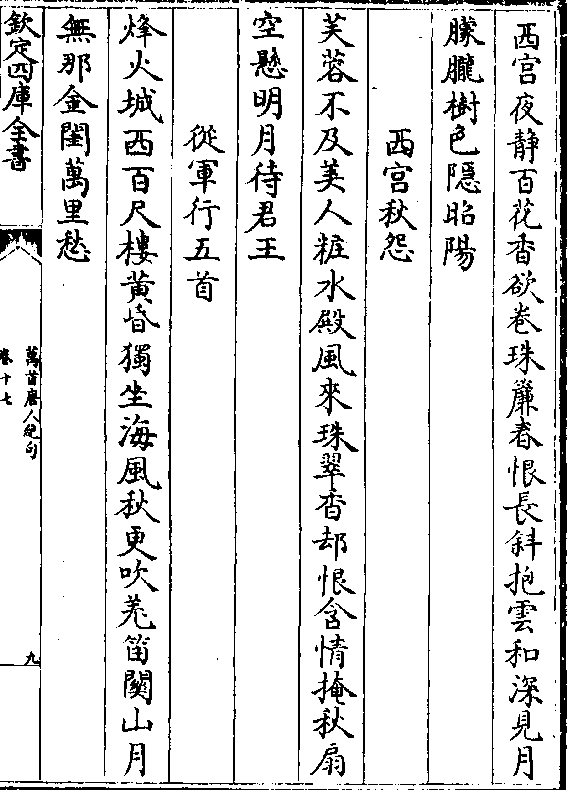 西宫夜静百花香欲卷珠簾春恨長斜抱雲和深見月
朦朧樹色隱昭陽
西宫秋怨
芙蓉不及美人粧水殿風來珠翠香却恨含情掩秋扇
空懸明月待君王
從軍行五首
烽火城西百尺樓黄昏獨坐海風秋更吹羌笛關山月
無那金閨萬里愁
欽定四庫全書
萬首唐人絶句
卷十七
九